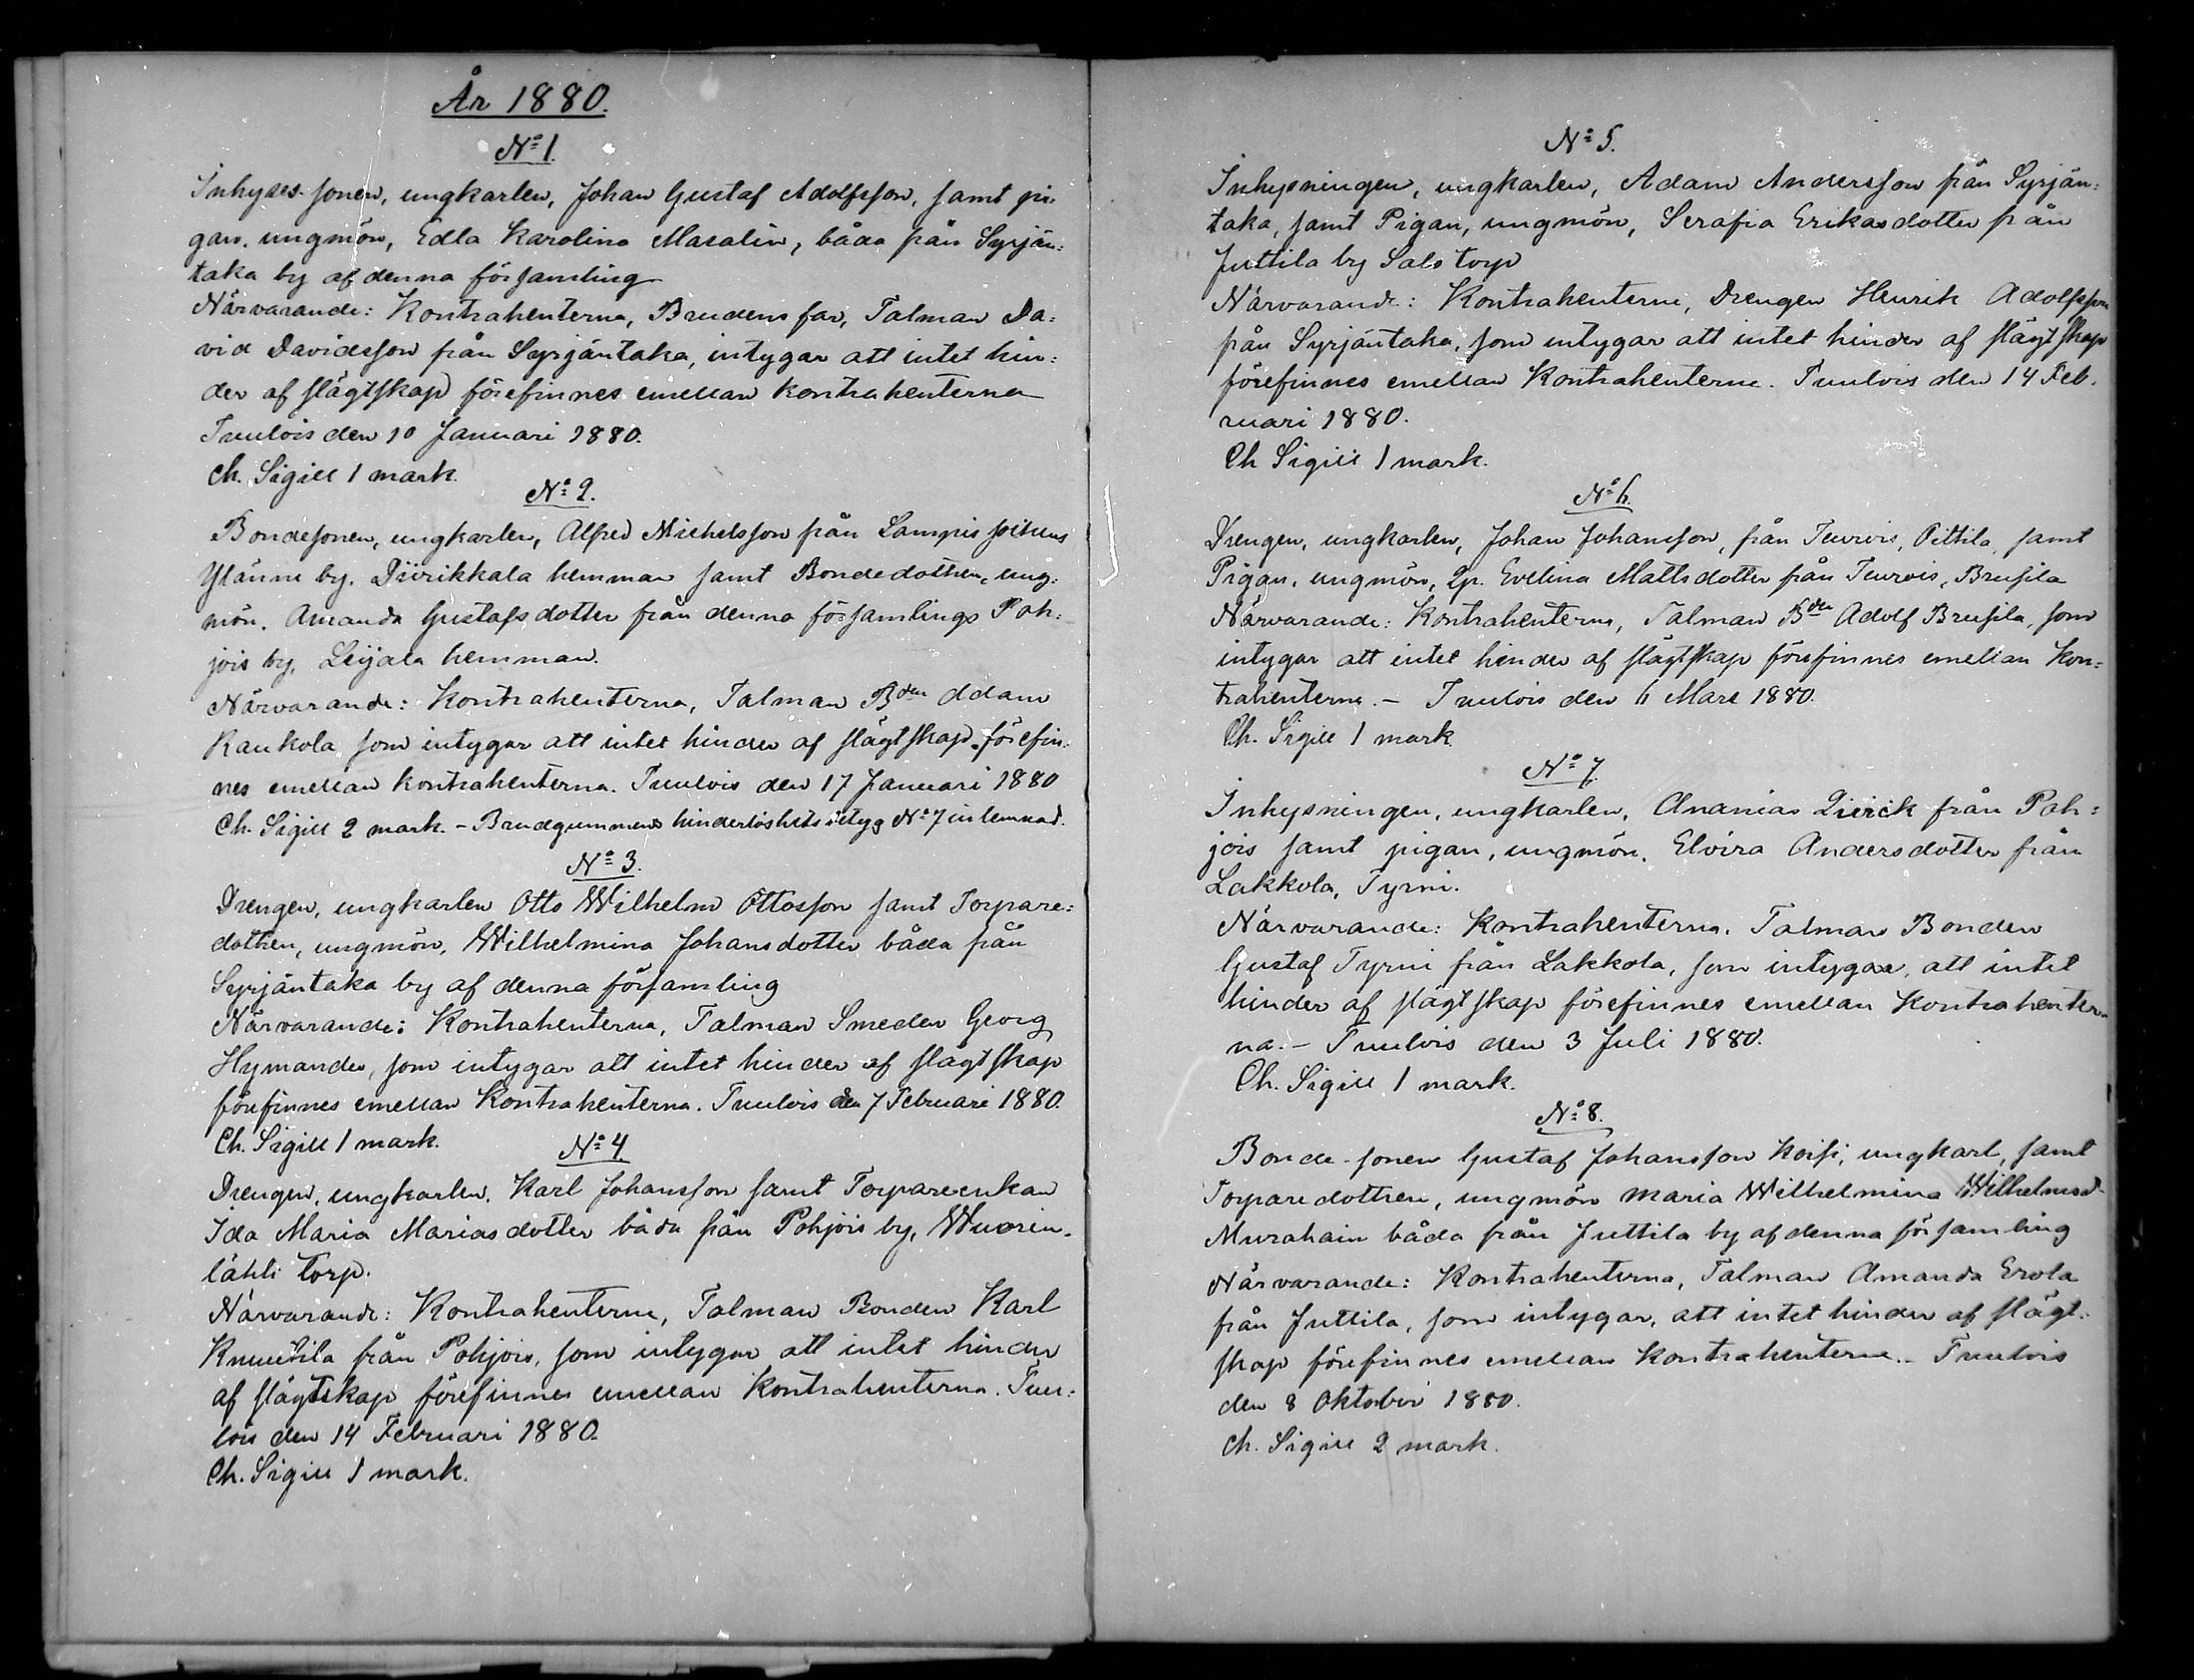 År 1880.
No 1.
Inhyses-sonen, ungkarlen, Johan Gustaf Adolfsson, samt pi-
gan, ungmön, Edla Karolina Masalin, båda från Syrjän=
taka by af denna församling
Närvarande: Kontrahenterna, Brudens far, Talman Da=
vid Davidsson från Syrjäntaka, intygar att intet hin=
der af slägtskap förefinnes emellan kontrahenterna
Tuulois den 10 Januari 1880.
Ch. Sigill 1 mark.
No 2.
Bondesonen, ungkarlen, Alfred Michelsson från Lampis sockens
Ylänne by, hemman samt Bondedottren, ung=
mön, Amanda Gustafsdotter från denna församlings Poh=
jois by, Leijala hemman.
Närvarande: Kontrahenterna, Talman Bden Adam
Raukola som intygar att intet hinder af slägtskap förefin=
nes emellan kontrahenterna. Tuulois den 17 Januari 1880
Ch. Sigill 2 mark. - Brudgummens hinderlöshetsbetyg No 7 inlemnad.
No 3.
Drengen, ungkarlen Otto Wilhelm Ottosson samt Torpare=
dottren, ungmön, Wilhelmina Johansdotter båda från
Syrjäntaka by af denna församling
Närvarande: Kontrahenterna, Talman Smeden Georg
Hymander, som intygar att intet hinder af slägtskap
förefinnes emellan Kontrahenterna. Tuulois den 7 Februari 1880.
Ch. Sigill 1 mark.
No 4.
Drengen, ungkarlen, Karl Johansson samt Torpareenkan
Ida Maria Mariasdotter båda från Pohjois by, Wuorin-
lähti torp.
Närvarande: Kontrahenterna, Talman Bonden Karl
Knuutila från Pohjois, som intygar att intet hinder
af slägtskap förefinnes emellan Kontrahenterna. Tuu=
lois den 14 Februari 1880.
Ch. Sigill 1 mark.
No 5.
Inhysningen, ungkarlen, Adam Andersson från Syrjän=
taka, samt Pigan, ungmön, Serafia Erikasdotter från
Juttila by Salo torp
Närvarande: Kontrahenterna, Drengen Henrik Adolfsson
från Syrjäntaka, som intygar att intet hinder af slägtskap
förefinnes emellan Kontrahenterna. Tuulois den 14 Feb.
ruari 1880.
Ch Sigill 1 mark.
No 6.
Drengen, ungkarlen, Johan Johansson, från Teuvois, Pittila, samt
Pigan, ungmön, Evelina Mattsdotter från Teuvois, Brusila
Närvarande: Kontrahenterna, Talman Bden Adolf Brusila, som
intygar att intet hinder af slägtskap förefinnes emellan Kon=
trahenterna. - Tuulois den 6 Mars 1880.
Ch. Sigill 1 mark.
No 7.
Inhysningen, ungkarlen, Ananias Qvick från Poh=
jois samt pigan, ungmön, Elvira Andersdotter från
Lakkola, Tyrni.
Närvarande: Kontrahenterna, Talman Bonden
Gustaf Tyrni från Lakkola, som intygar, att intet
hinder af slägtskap förefinnes emellan Kontrahenter=
na. - Tuulois den 3 Juli 1880.
Ch. Sigill 1 mark.
No 8.
Bonde-sonen Gustaf Johansson Koisi, ungkarl, samt
Torparedottren, ungmön Maria Wilhelmina Wilhelmsd.
Murahain båda från Juttila by af denna församling
Närvarande: Kontrahenterna, Talman Amanda Erola
från Juttila, som intygar, att intet hinder af slägt=
skap förefinnes emellan kontrahenterna. - Tuulois
den 8 Oktober 1880.
Ch. Sigill 2 mark.